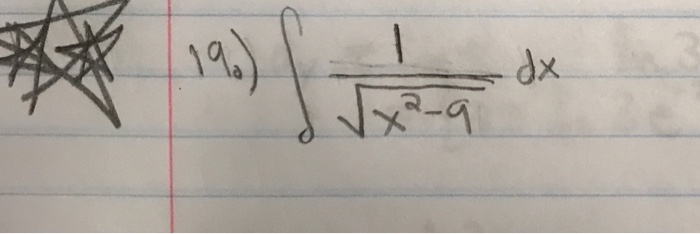 19.) ∫ 1/√(x²-9) dx